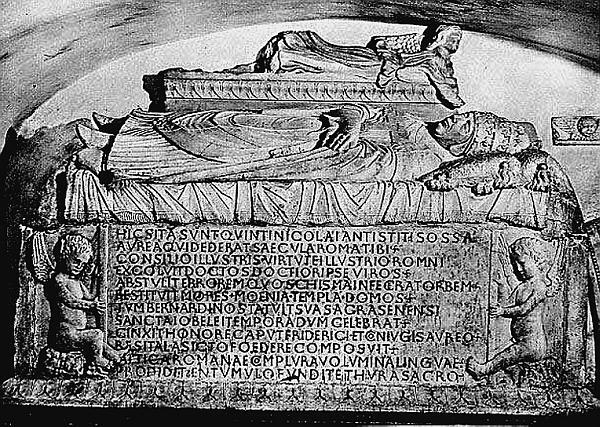 HIC SITA SVNT QVINTI NICOLAI ANTISTITIS OSSA
AVREA QVI DEDERAT SAECVLA ROMA TIBI
CONSILIO ILLVSTRIS VIRTVTE ILLVSTRIOR OMNI
EXCOLVIT DOCTOS DOCTIOR IPSE VIROS
ABSTVLIT ERROREM QVO SCHISMA INFECERAT ORBEM
RESTITVIT MORES MOENIA TEMPLA DOMOS
TVM BERNARDINO STATVIT SVA SACRA SENENSI
SANCTA IOBELEI TEMPORA DVM CELEBRAT
CINXIT HONORE CAPVT FRIDERICI ET CONIVGIS AVREO
RES ITALAS ICTO FOEDERE COMPOSVIT
ATTICA ROMANAE COMPLVRA VOLVMINA LINGVAE
PRODIDIT EN TVMVLO FVNDITE THVRA SACRO